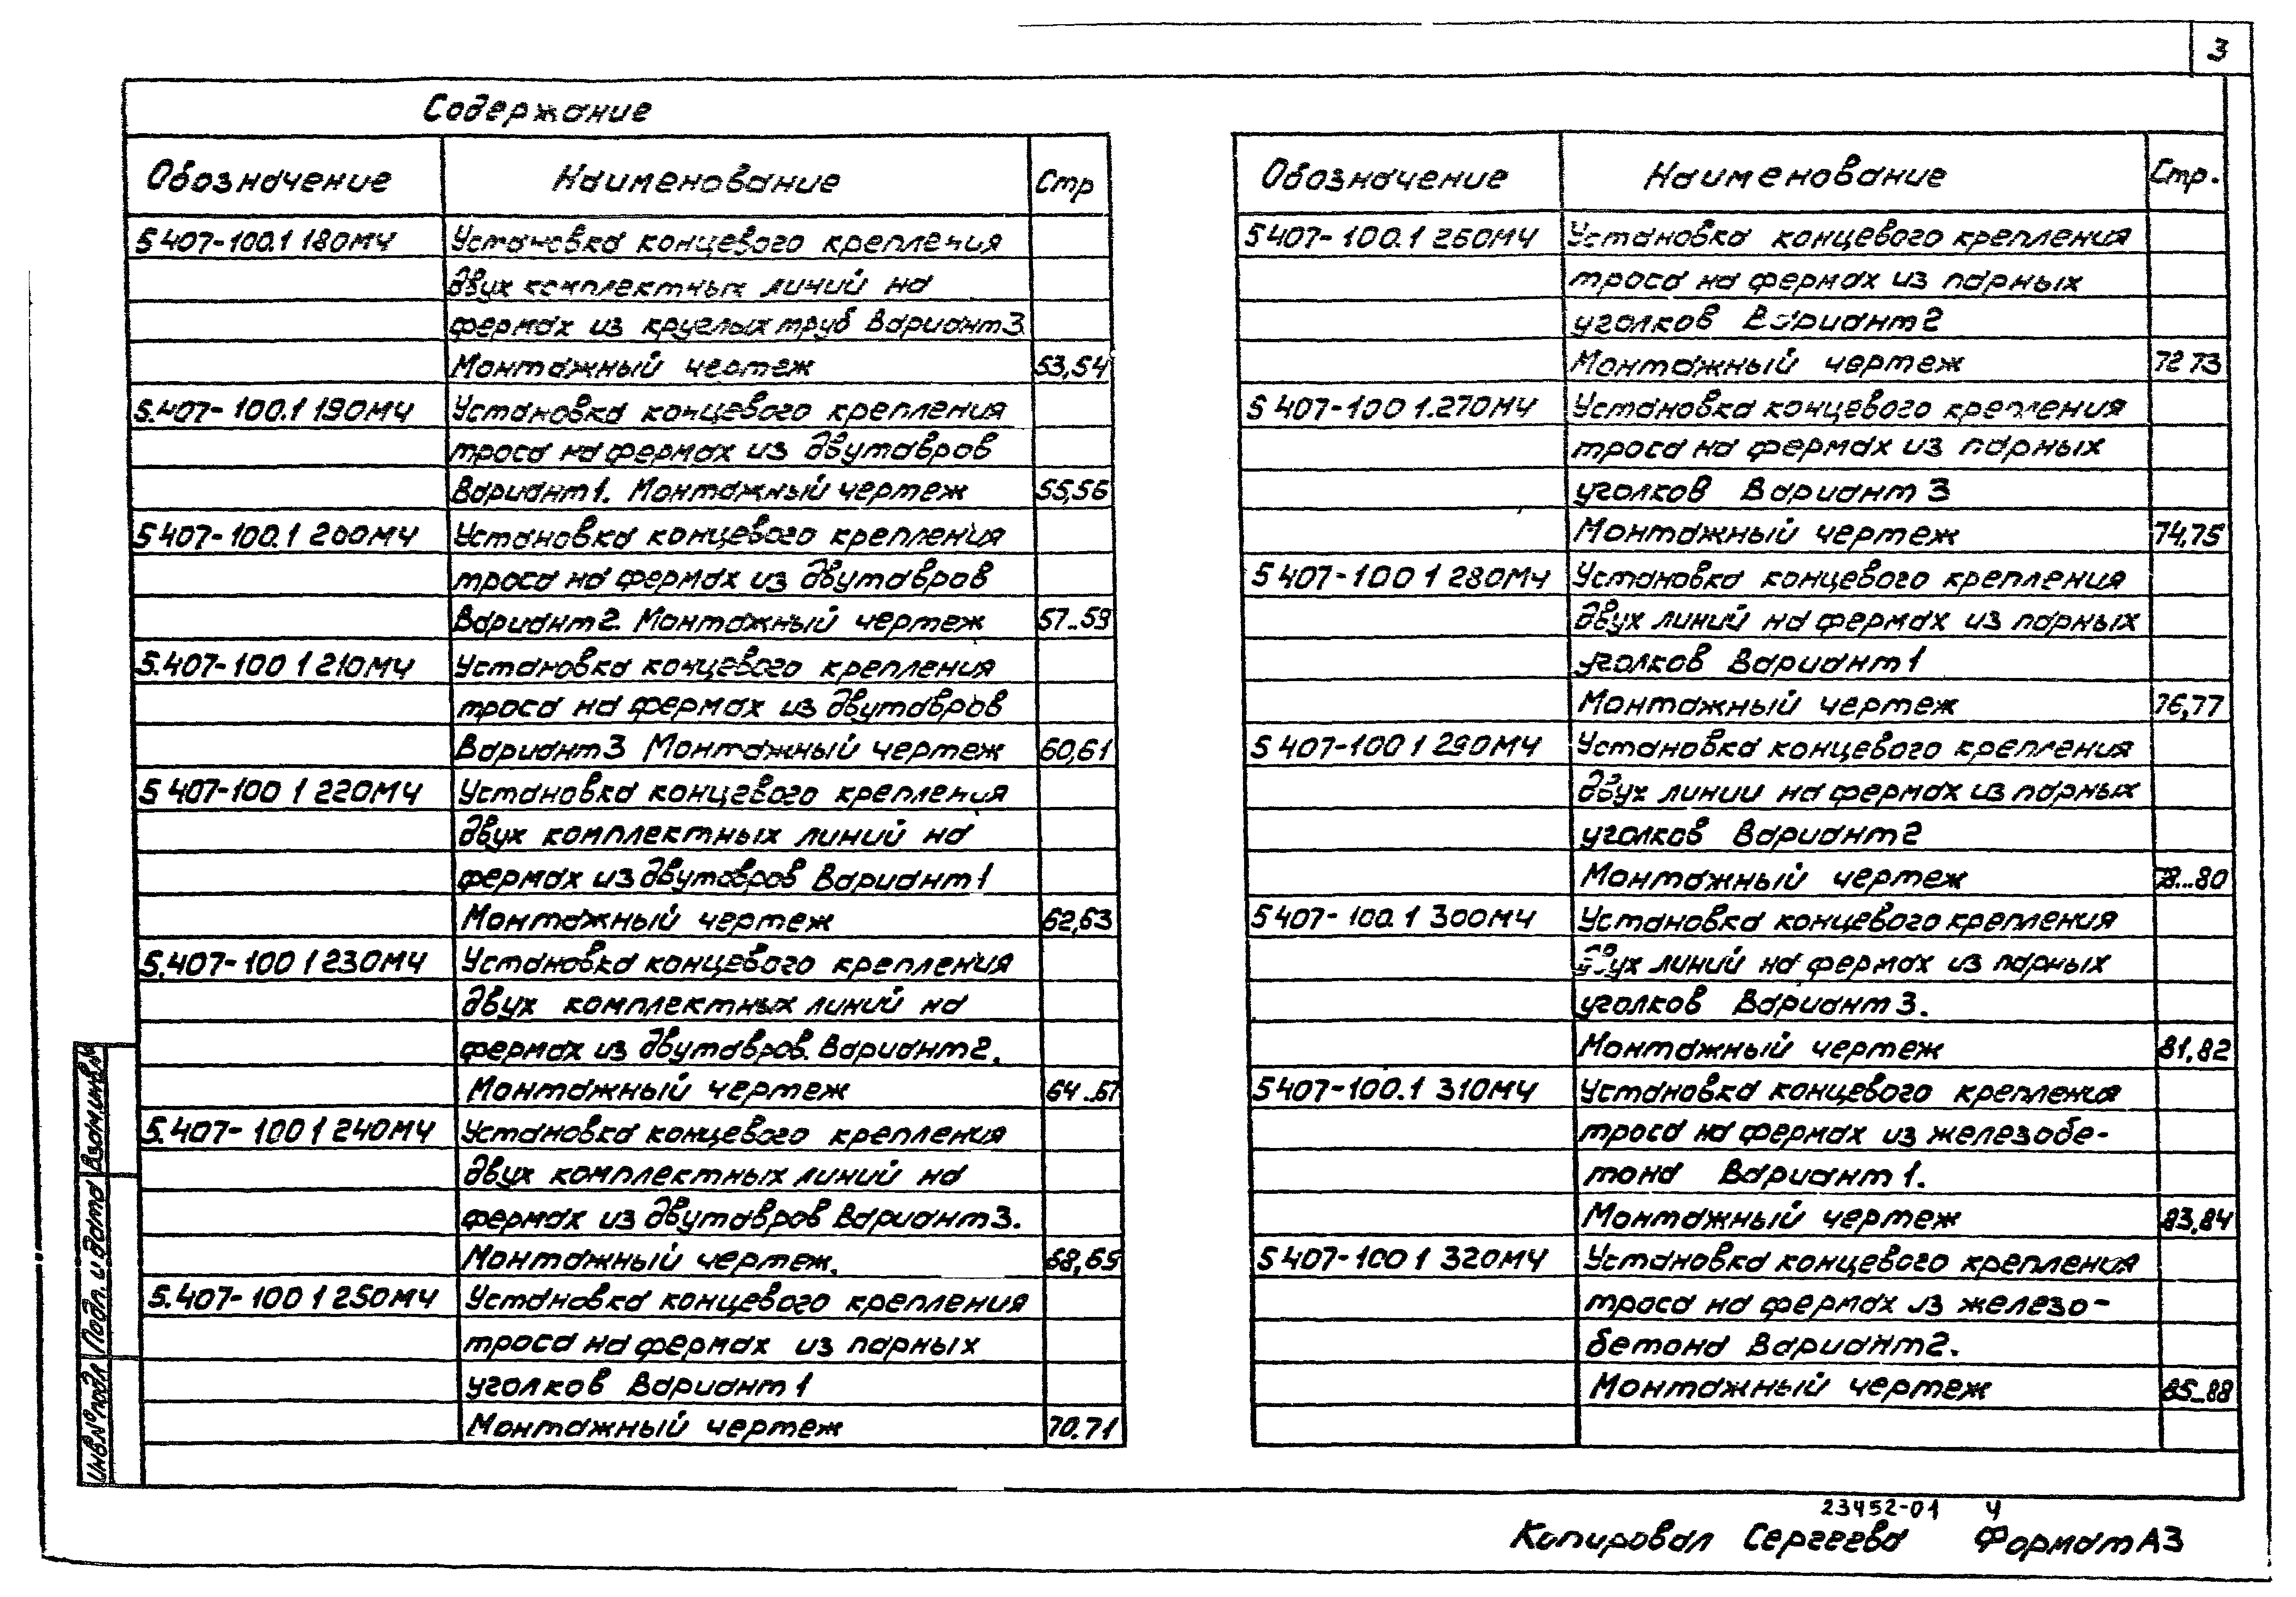 3
Содержание
Обозначение Наименование Стр
5 407-100.1 180МЧ Установка концевого крепления
двух комплектных линий на
фермах из круглых труб Вариант 3.
Монтажный чертеж 53,54
5.407-100.1 190МЧ Установка концевого крепления
троса на фермах из двутавров
Вариант 1. Монтажный чертеж 55,56
5 407-100.1 200МЧ Установка концевого крепления
троса на фермах из двутавров
Вариант 2. Монтажный чертеж 57..59
5.407-100 1 210МЧ Установка концевого крепления
троса на фермах из двутавров
Вариант 3 Монтажный чертеж 60,61
5 407-100 1 220МЧ Установка концевого крепления
двух комплектных линий на
фермах из двутавров Вариант 1
Монтажный чертеж 62,63
5.407-100 1 230МЧ Установка концевого крепления
двух комплектных линий на
фермах из двутавров. Вариант 2.
Монтажный чертеж 64..67
5.407-100 1 240МЧ Установка концевого крепления
двух комплектных линий на
фермах из двутавров Вариант 3.
Монтажный чертеж. 68,69
5.407-100 1 250МЧ Установка концевого крепления
троса на фермах из парных
уголков Вариант 1
Монтажный чертеж 70.71
Обозначение Наименование Стр.
5 407-100.1 260МЧ Установка концевого крепления
троса на фермах из парных
уголков Вариант 2
Монтажный чертеж 72 73
5 407-100 1.270МЧ Установка концевого крепления
троса на фермах из парных
уголков Вариант 3
Монтажный чертеж 74,75
5 407-100 1 280МЧ Установка концевого крепления
двух линий на фермах из парных
уголков Вариант 1
Монтажный чертеж 76,77
5 407-100 1 290МЧ Установка концевого крепления
двух линии на фермах из парных
уголков Вариант 2
Монтажный чертеж 78...80
5 407-100.1 300МЧ Установка концевого крепления
двух линий на фермах из парных
уголков Вариант 3.
Монтажный чертеж 81,82
5 407-100.1 310МЧ Установка концевого крепления
троса на фермах из железобе-
тона Вариант 1.
Монтажный чертеж 83,84
5 407-100 1 320МЧ Установка концевого крепления
троса на фермах из железо-
бетона Вариант 2.
Монтажный чертеж 85..88
Взам.инв.№
Подп. и дата
Инв.№подл
23452-01 4
Копировал Сергеева Формат А3